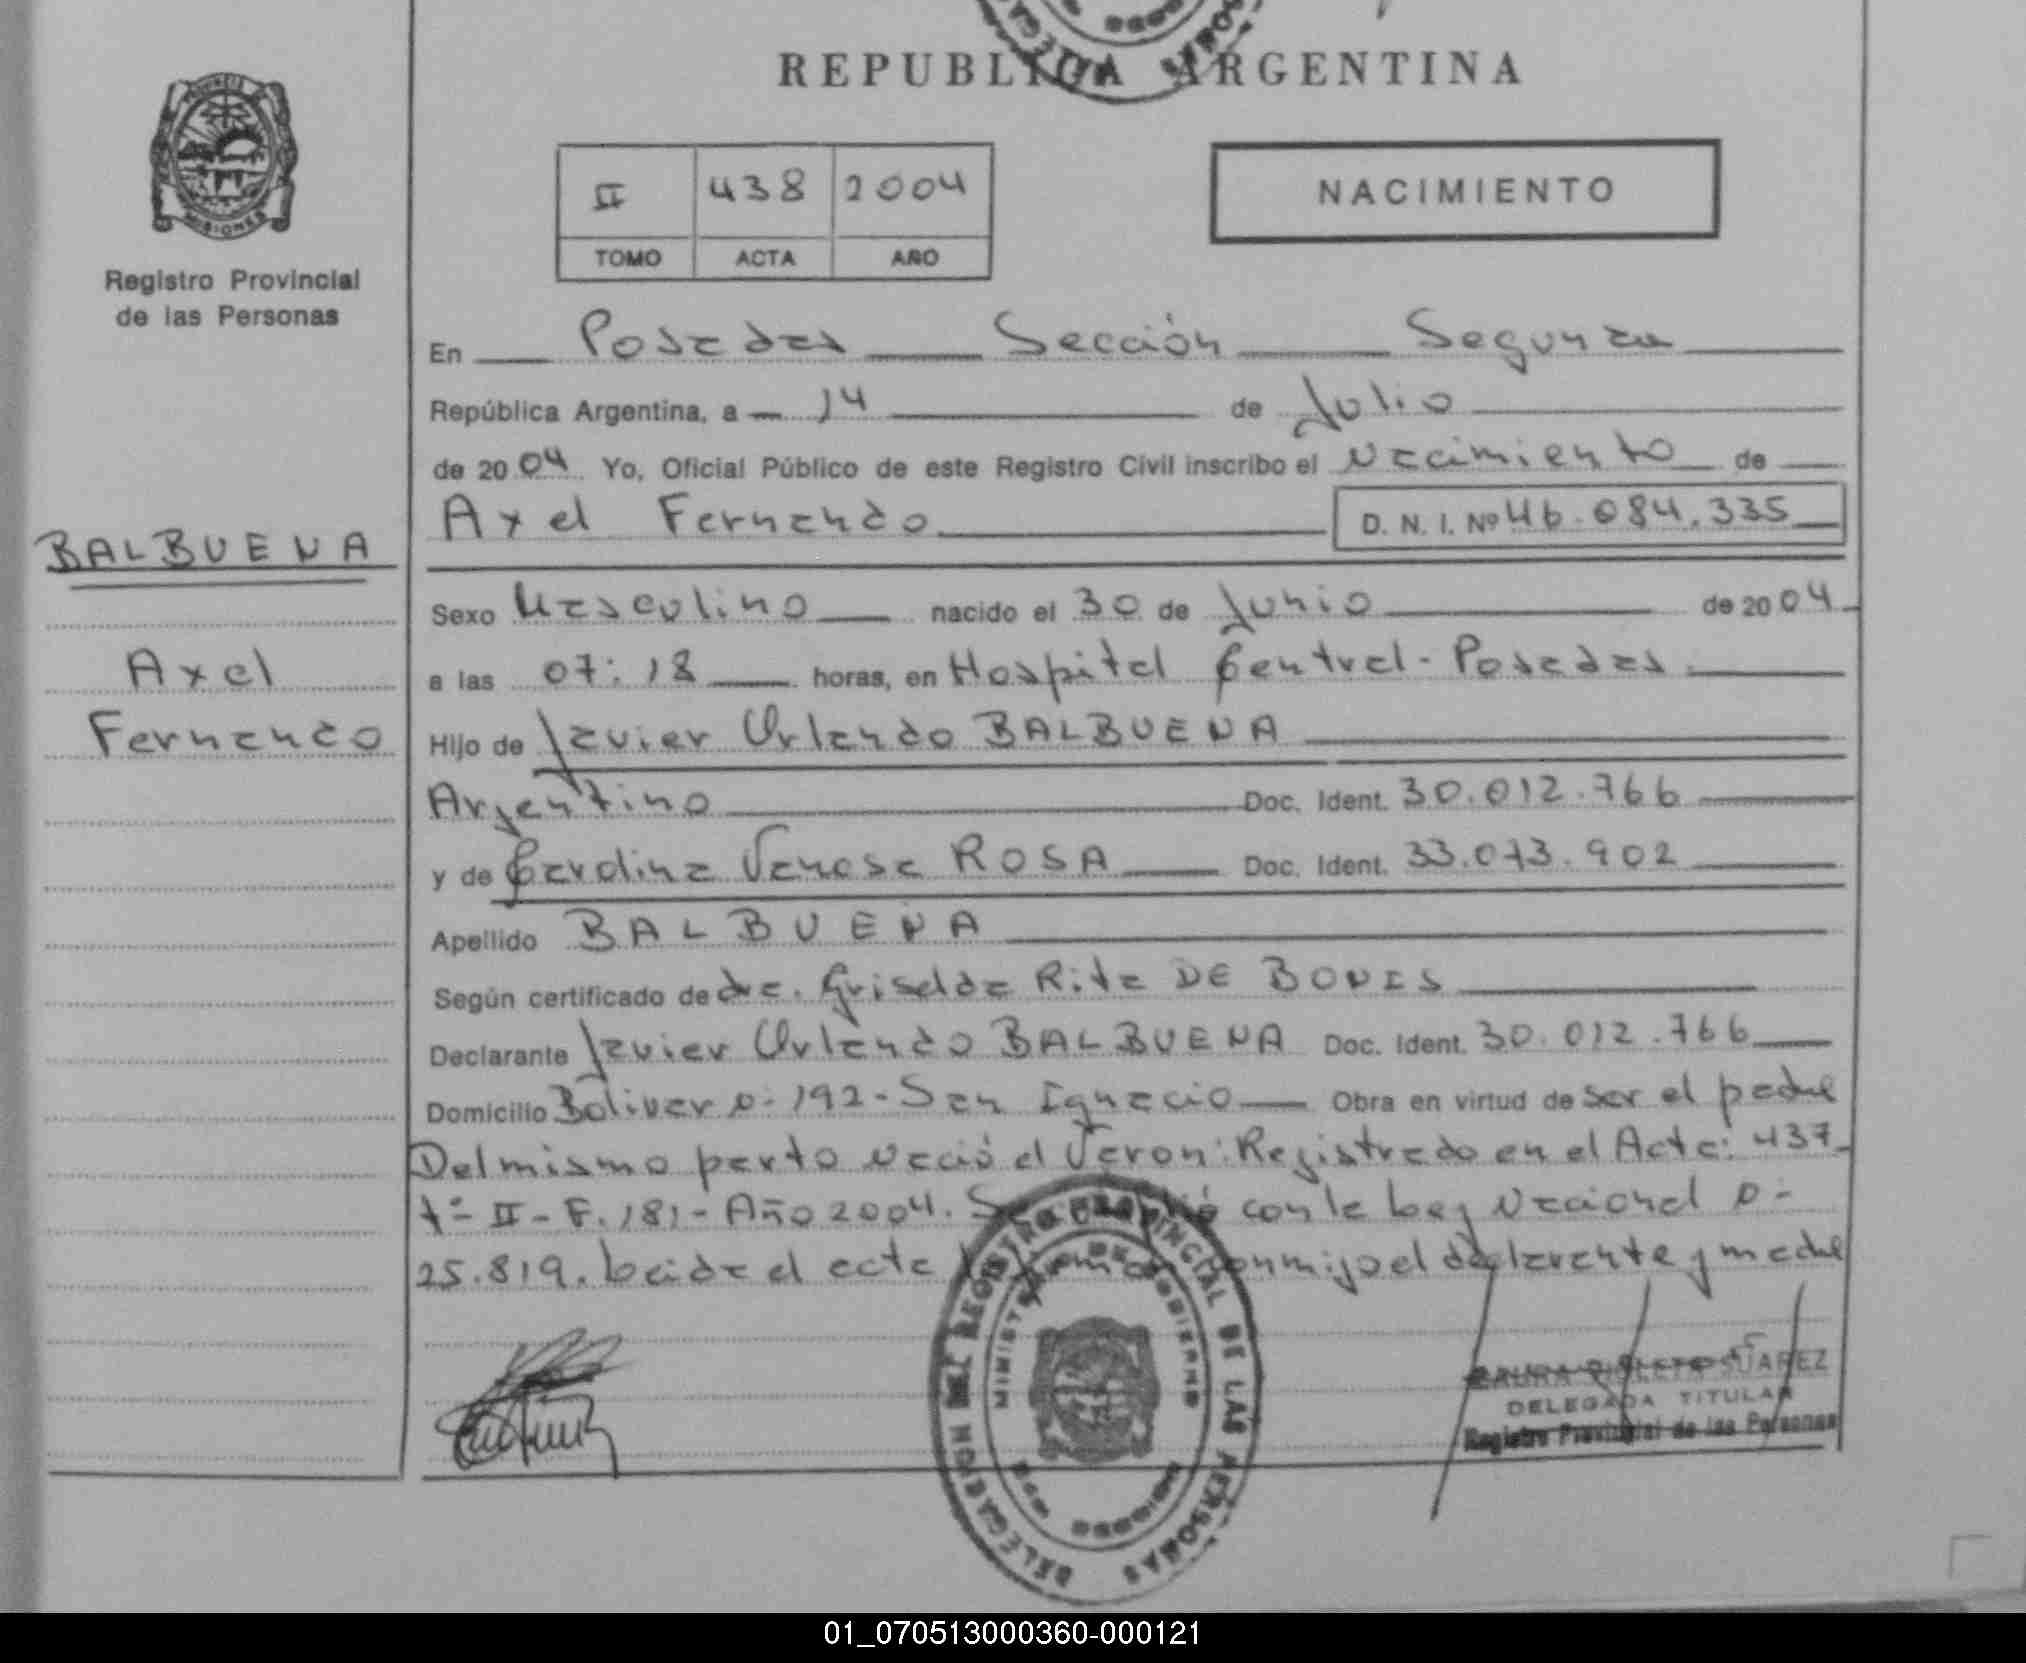 REPUBLICA ARGENTINA
PROVINCIA
MISIONES
Registro Provincial
de las Personas
II 438 2004
TOMO ACTA AÑO
NACIMIENTO
En Posadas Sección Segunda
República Argentina, a 14 de Julio
de 2004 Yo, Oficial Público de este Registro Civil inscribo el Nacimiento de
Axel Fernando D. N. I. Nº 46.084.335
BALBUENA
Axel
Fernando
Sexo Masculino nacido el 30 de Junio de 2004
a las 07:18 horas, en Hospital Central - Posadas
Hijo de Javier Orlando BALBUENA
Argentino Doc. Ident. 30.012.766
y de Carolina Vanesa ROSA Doc. Ident. 33.073.902
Apellido BALBUENA
Según certificado de dra. Griselda Rita DE BONIS
Declarante Javier Orlando BALBUENA Doc. Ident. 30.012.766
Domicilio Bolivar N: 192 - San Ignacio Obra en virtud de ser el padre
Del mismo parto nació el Varon: Registrado en el Acta: 437-
tº II - F. 181 - Año 2004. con la Ley Nacional N:
25.819. Leida el acta conmigo el declarante y madre
DELEGACION DEL REGISTRO PROVINCIAL DE LAS PERSONAS
MINISTERIO DE GOBIERNO
SUAREZ
DELEGADA TITULAR
Registro Provincial de las Personas
01_070513000360-000121